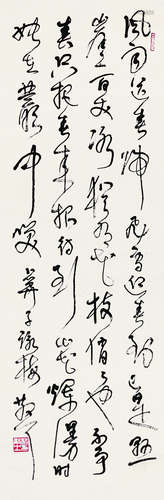 風雨送春歸飛雪迎春到已是懸
崖百丈冰猶有花枝俏俏也不争
春只把春来報待到山花爛漫时
她在叢中笑 算子詠梅